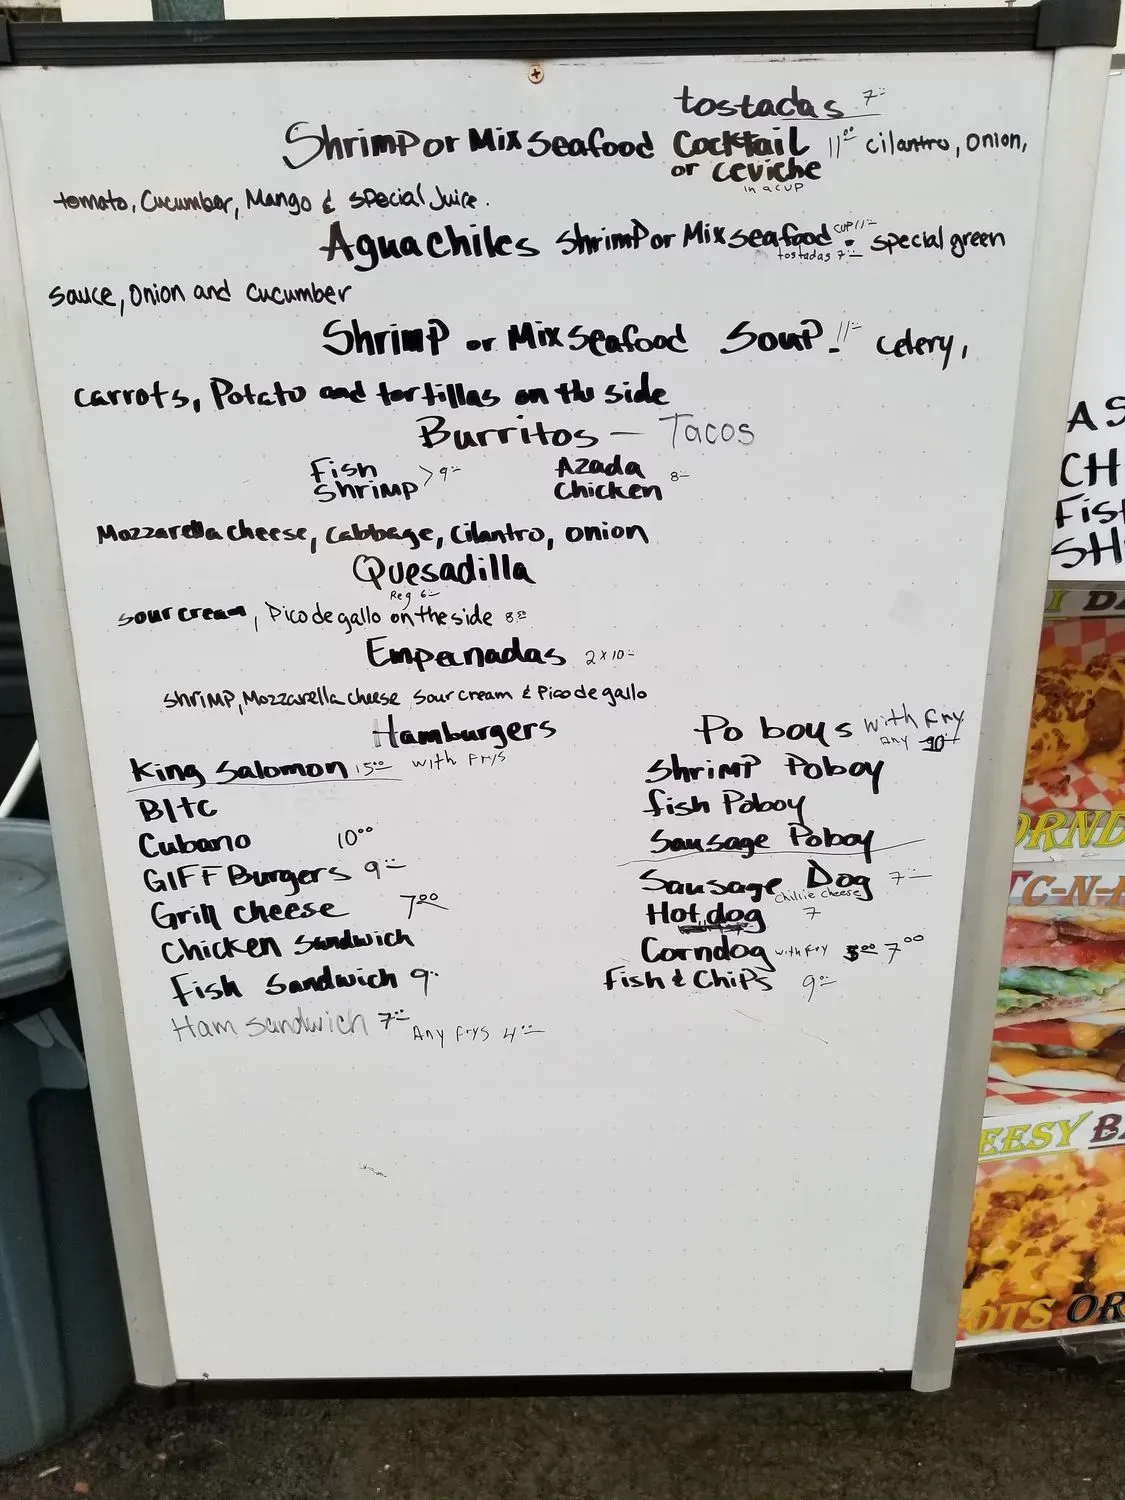 tostadas 7
Shrimp or Mix seafood Cocktail 11⁰⁰ cilantro, onion,
or ceviche
in a cup
tomato, Cucumber, Mango & special Juice.
Aguachiles Shrimp or Mix seafood cup 11 special green
tostadas 7
sauce, onion and cucumber
Shrimp or Mix seafood Soup. 11 celery,
carrots, Potato and tortillas on the side
Burritos - Tacos
Fish Azada
Shrimp > 9 Chicken 8
Mozzarella cheese, cabbage, cilantro, onion
Quesadilla
Reg 6
sour cream, Pico de gallo on the side 8⁵⁰
Empanadas 2 x 10
shrimp, Mozzarella cheese sour cream & Pico de gallo
Hamburgers
King Salomon 15⁰⁰ with Frys
Bltc
Cubano 10⁰⁰
GIFF Burgers 9
Grill cheese 7⁰⁰
Chicken Sandwich
Fish Sandwich 9
Ham sandwich 7
Any Frys 4
Po boys with Fry
Any 10
Shrimp Poboy
fish Poboy
Sausage Poboy
Sausage Dog 7
chillie cheese
Hot dog 7
Corndog with Fry 7⁰⁰
Fish & Chips 9
AS
CH
Fis
SH
I DA
ORND
TC-N-
EESY BA
OTS OR